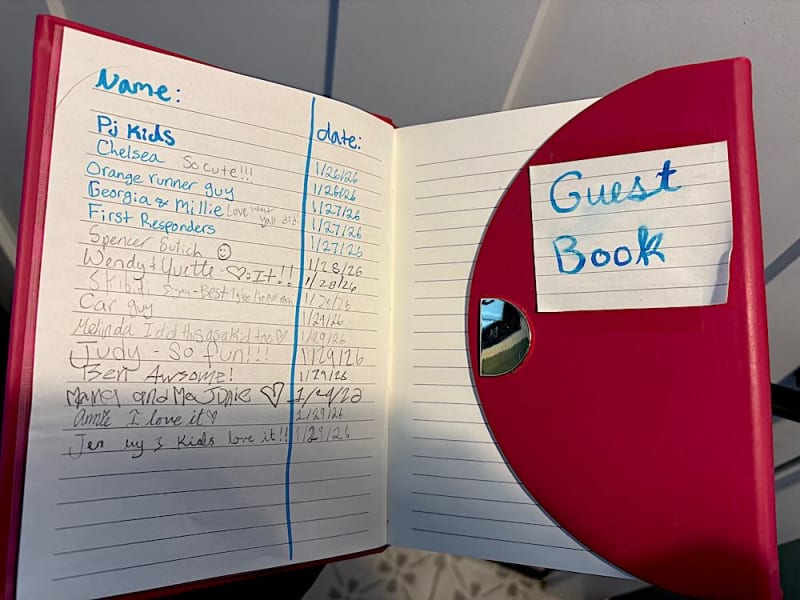 Name: date:
PJ Kids 1/26/26
Chelsea So cute!!! 1/26/26
Orange runner guy 1/27/26
Georgia & Millie Love what yall did! 1/27/26
First Responders 1/27/26
Spencer Sutich ☺ 1/28/26
Wendy & Yvette - ♡:It!! 1/28/26
Skibidi 1/28/26
Car guy 1/29/26
Melinda I did this as a kid too ♡ 1/29/26
Judy - So fun!!! 1/29/26
Ben Awsome! 1/29/26
and ♡
Annie I love it ♡ 1/29/26
Jen my 3 kids love it!! 1/29/26
Guest
Book